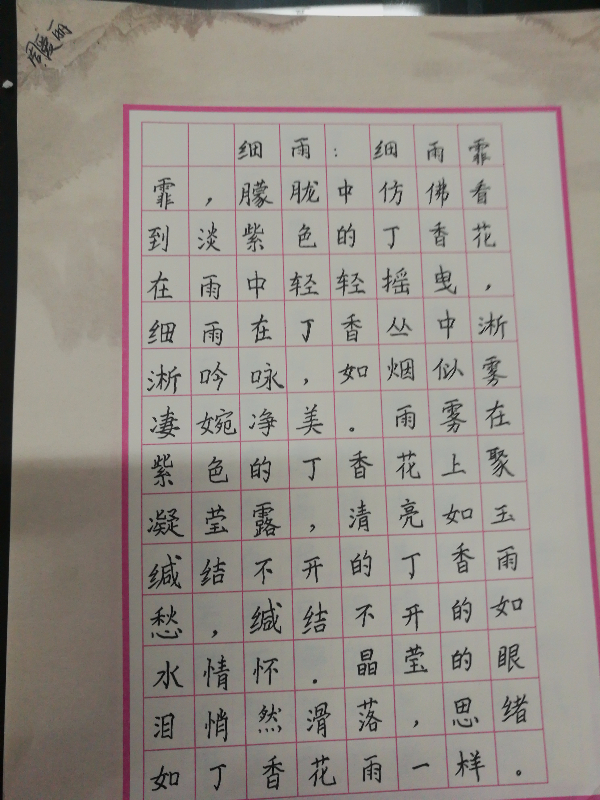 周爱丽
细雨：细雨霏
霏，朦胧中仿佛看
到淡紫色的丁香花
在雨中轻轻摇曳，
细雨在丁香丛中淅
淅吟咏，如烟似雾
凄婉净美。雨雾在
紫色的丁香花上聚
凝莹露，清亮如玉
缄结不开的丁香雨
愁，缄结不开的如
水情怀．晶莹的眼
泪悄然滑落，思绪
如丁香花雨一样。